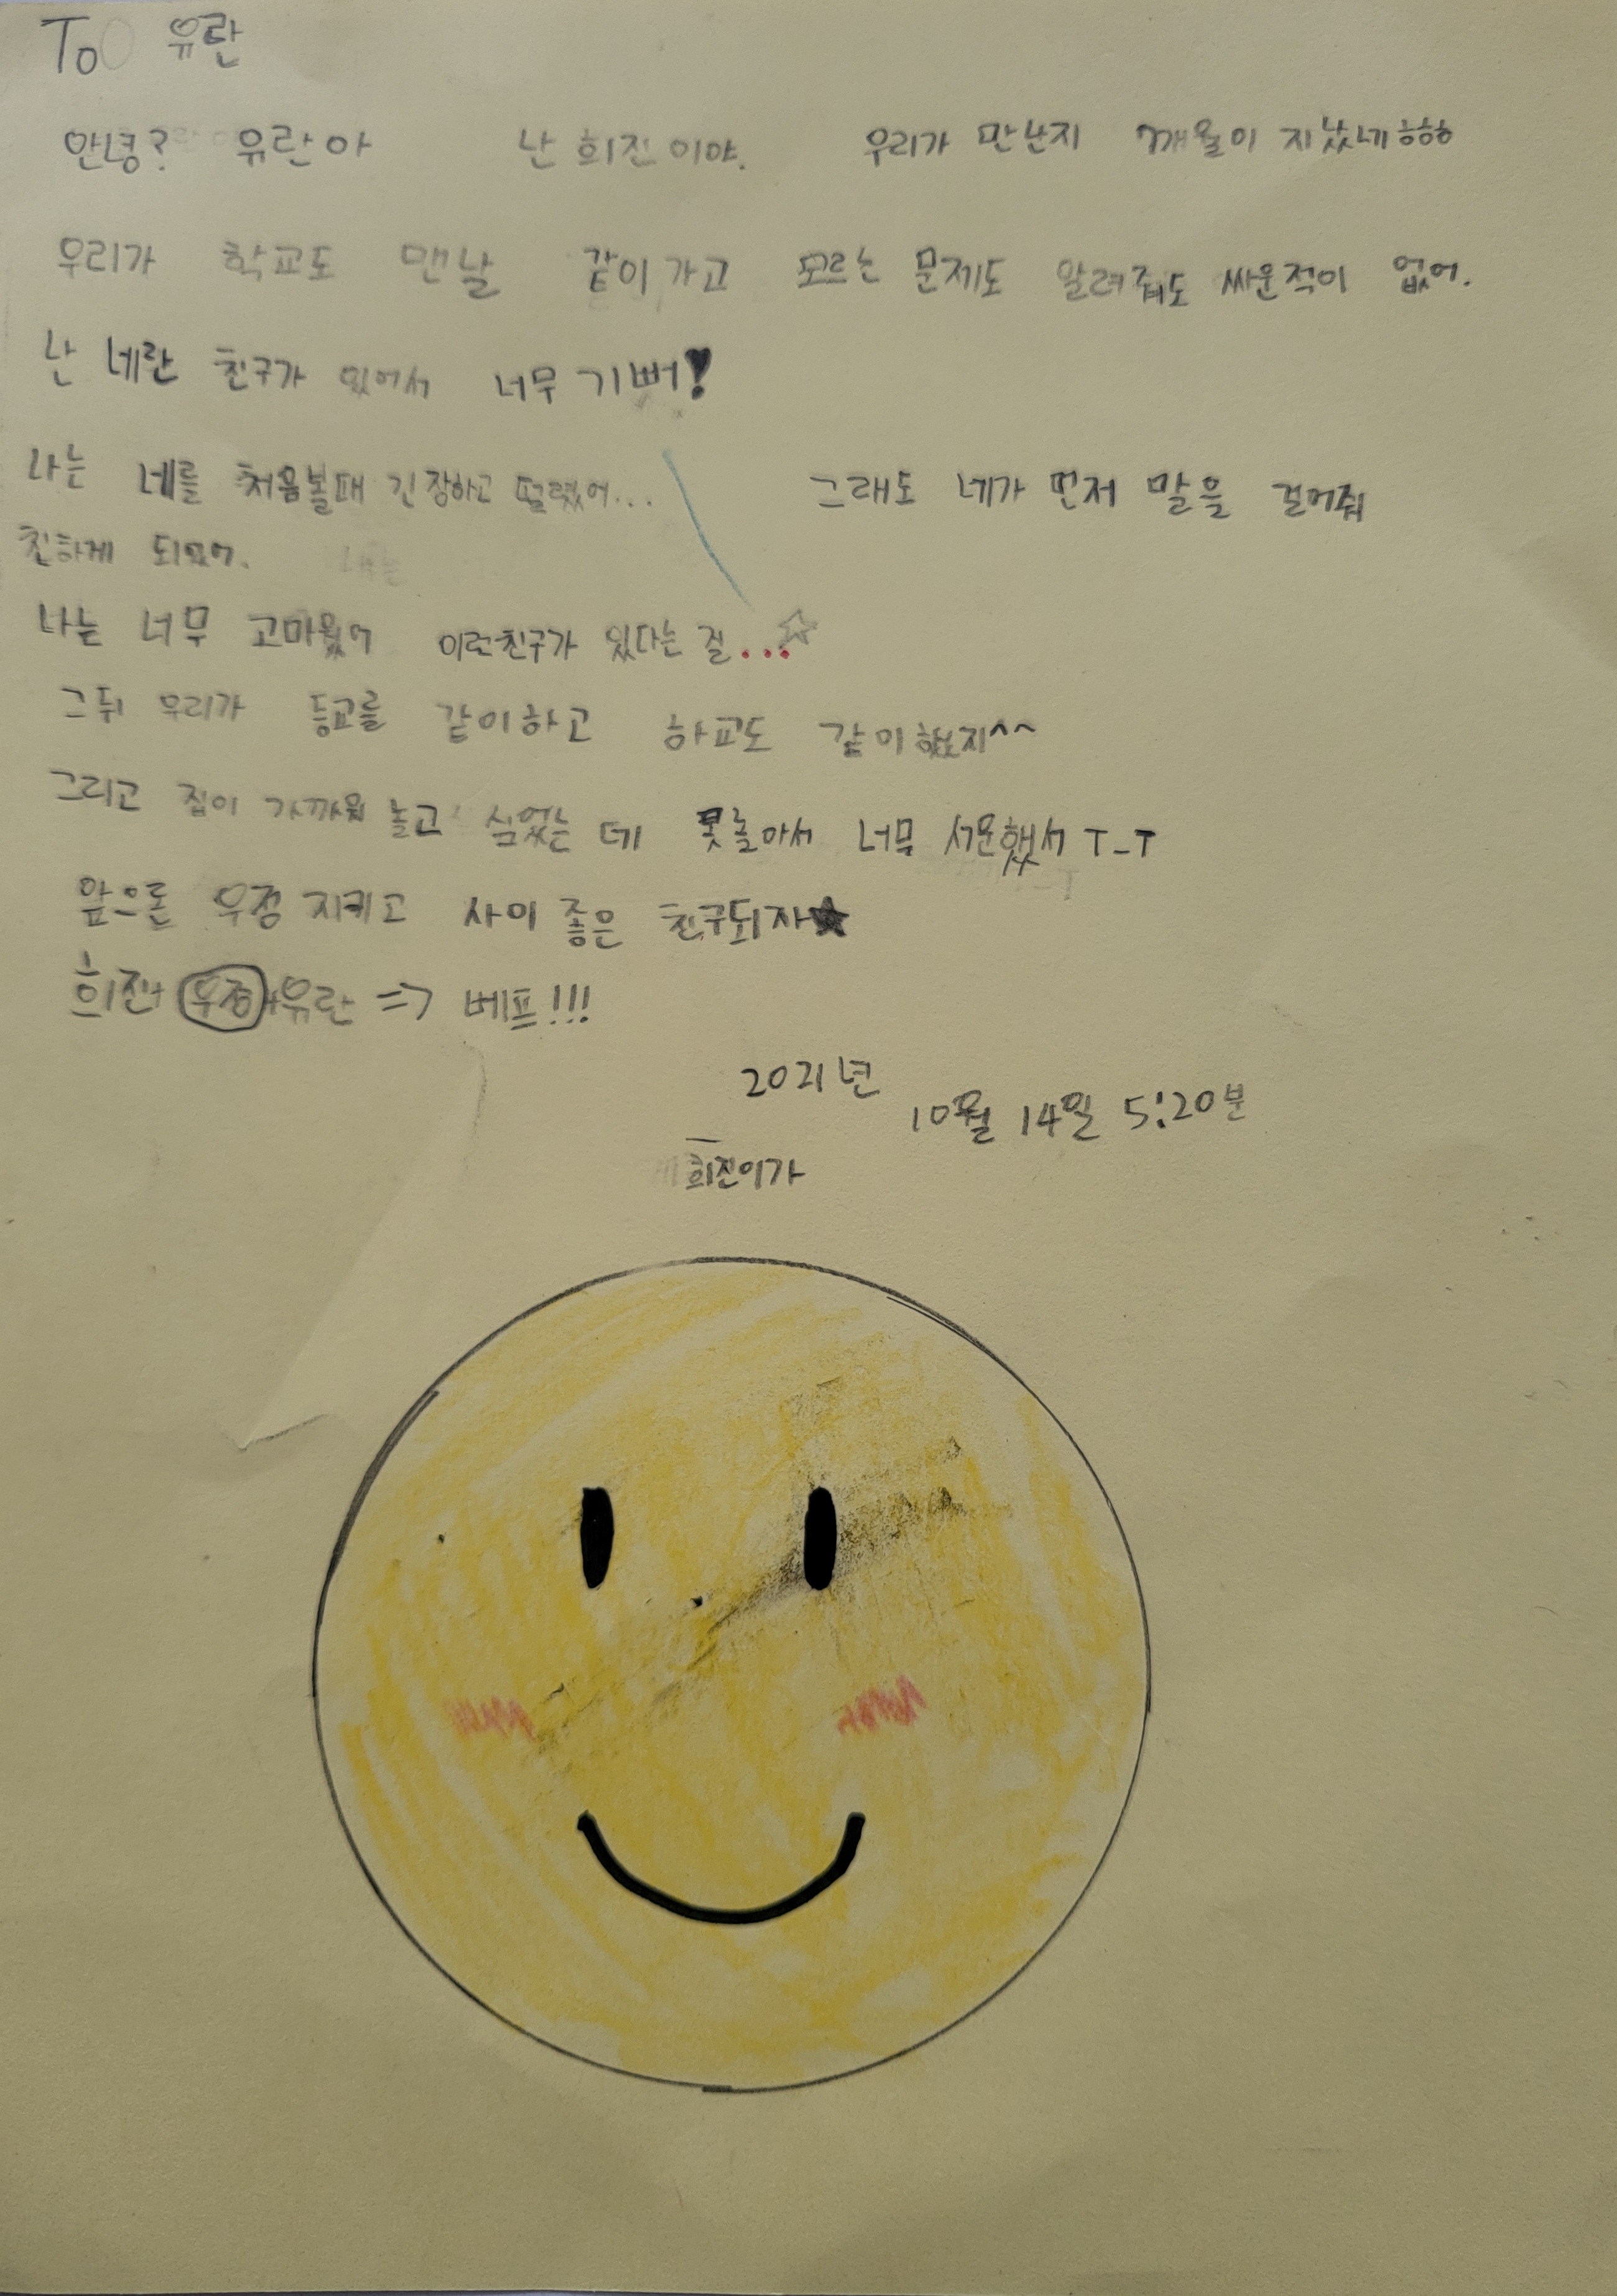 To 유란
안녕? 유란아 난 희진이야. 우리가 만난지 7개월이 지났네 ㅎㅎㅎ
우리가 학교도 맨날 같이 가고 모르는 문제도 알려줘도 싸운적이 없어.
난 네란 친구가 있어서 너무 기뻐!
나는 네를 처음볼때 긴장하고 떨렸어... 그래도 네가 먼저 말을 걸어줘
친하게 되었어.
나는 너무 고마웠어 이런친구가 있다는 걸...☆
그 뒤 우리가 등교를 같이하고 하교도 같이했지^^
그리고 집이 가까워 놀고 싶었는 데 못놀아서 너무 서운했서 T-T
앞으론 우정 지키고 사이 좋은 친구되자★
희진+우정+유란 => 베프!!!
2021년 10월 14일 5:20분
희진이가